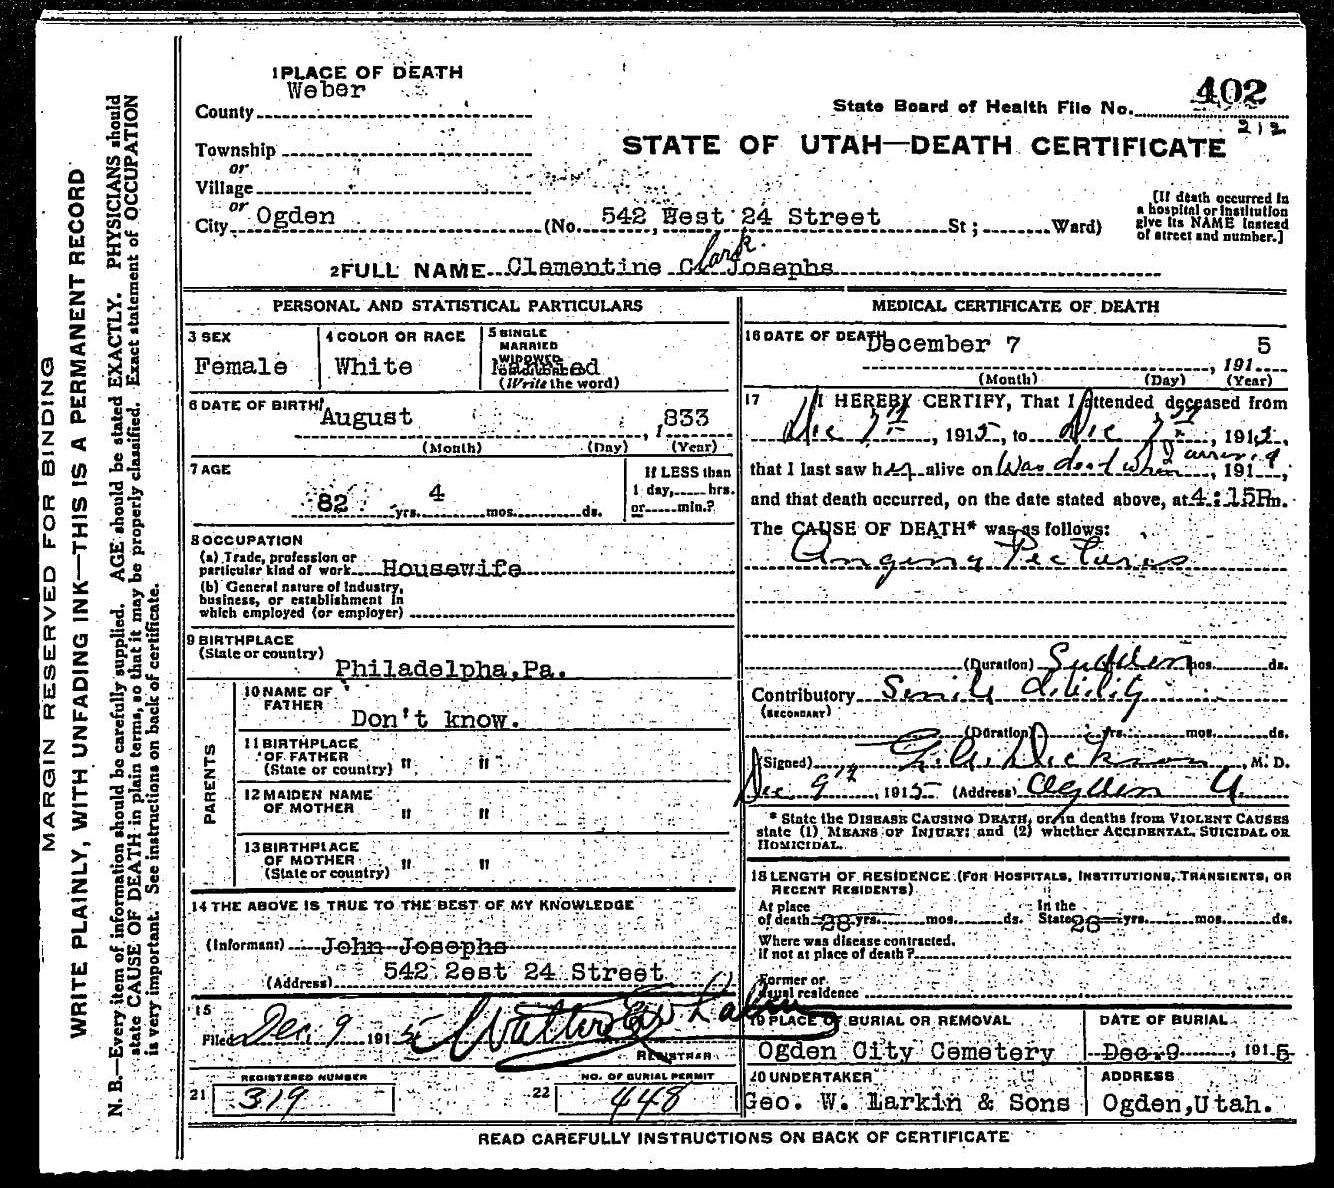 MARGIN RESERVED FOR BINDING
WRITE PLAINLY, WITH UNFADING INK—THIS IS A PERMANENT RECORD
N. B.—Every item of information should be carefully supplied. AGE should be stated EXACTLY. PHYSICIANS should
state CAUSE OF DEATH in plain terms, so that it may be properly classified. Exact statement of OCCUPATION
is very important. See instructions on back of certificate.
1 PLACE OF DEATH
County Weber
Township
or
Village
or
City Ogden (No. 542 West 24 Street St; Ward)
State Board of Health File No. 402
212
STATE OF UTAH—DEATH CERTIFICATE
[If death occurred in
a hospital or institution
give its NAME instead
of street and number.]
2 FULL NAME Clamentine C. Clark. Josephs
PERSONAL AND STATISTICAL PARTICULARS
3 SEX
Female
4 COLOR OR RACE
White
5 SINGLE
MARRIED
WIDOWED
(Write the word)
6 DATE OF BIRTH
August , 1833
(Month) (Day) (Year)
7 AGE
82 yrs. 4 mos. ds.
If LESS than
1 day, hrs.
or min.?
8 OCCUPATION
(a) Trade, profession or
particular kind of work Housewife
(b) General nature of industry,
business, or establishment in
which employed (or employer)
9 BIRTHPLACE
(State or country)
Philadelpha,Pa.
PARENTS
10 NAME OF
FATHER
Don't know.
11 BIRTHPLACE
OF FATHER
(State or country) " "
12 MAIDEN NAME
OF MOTHER " "
13 BIRTHPLACE
OF MOTHER
(State or country) " "
14 THE ABOVE IS TRUE TO THE BEST OF MY KNOWLEDGE
(Informant) John Josephs
(Address) 542 2est 24 Street
15
Filed Dec. 9 1915 Walter
REGISTRAR
REGISTERED NUMBER
21 319
NO. OF BURIAL PERMIT
22 448
MEDICAL CERTIFICATE OF DEATH
16 DATE OF DEATH
December 7 , 1915
(Month) (Day) (Year)
17 I HEREBY CERTIFY, That I attended deceased from
Dec 7th , 1915, to Dec 7th , 1915,
that I last saw her alive on Was dead when I arrived , 191 ,
and that death occurred, on the date stated above, at 4:15P m.
The CAUSE OF DEATH* was as follows:
Angina Pectoras
(Duration) Sudden mos. ds.
Contributory Senile debility
(SECONDARY)
(Duration) yrs. mos. ds.
(Signed) Dickson , M. D.
Dec 9th , 1915 (Address) Ogden U
* State the DISEASE CAUSING DEATH, or in deaths from VIOLENT CAUSES
state (1) MEANS OF INJURY; and (2) whether ACCIDENTAL, SUICIDAL OR
HOMICIDAL.
18 LENGTH OF RESIDENCE (FOR HOSPITALS, INSTITUTIONS, TRANSIENTS, OR
RECENT RESIDENTS)
At place
of death 28 yrs. mos. ds.
In the
State 28 yrs. mos. ds.
Where was disease contracted,
if not at place of death?
Former or
usual residence
19 PLACE OF BURIAL OR REMOVAL
Ogden City Cemetery
DATE OF BURIAL
Dec. 9 , 1915
20 UNDERTAKER
Geo. W. Larkin & Sons
ADDRESS
Ogden,Utah.
READ CAREFULLY INSTRUCTIONS ON BACK OF CERTIFICATE